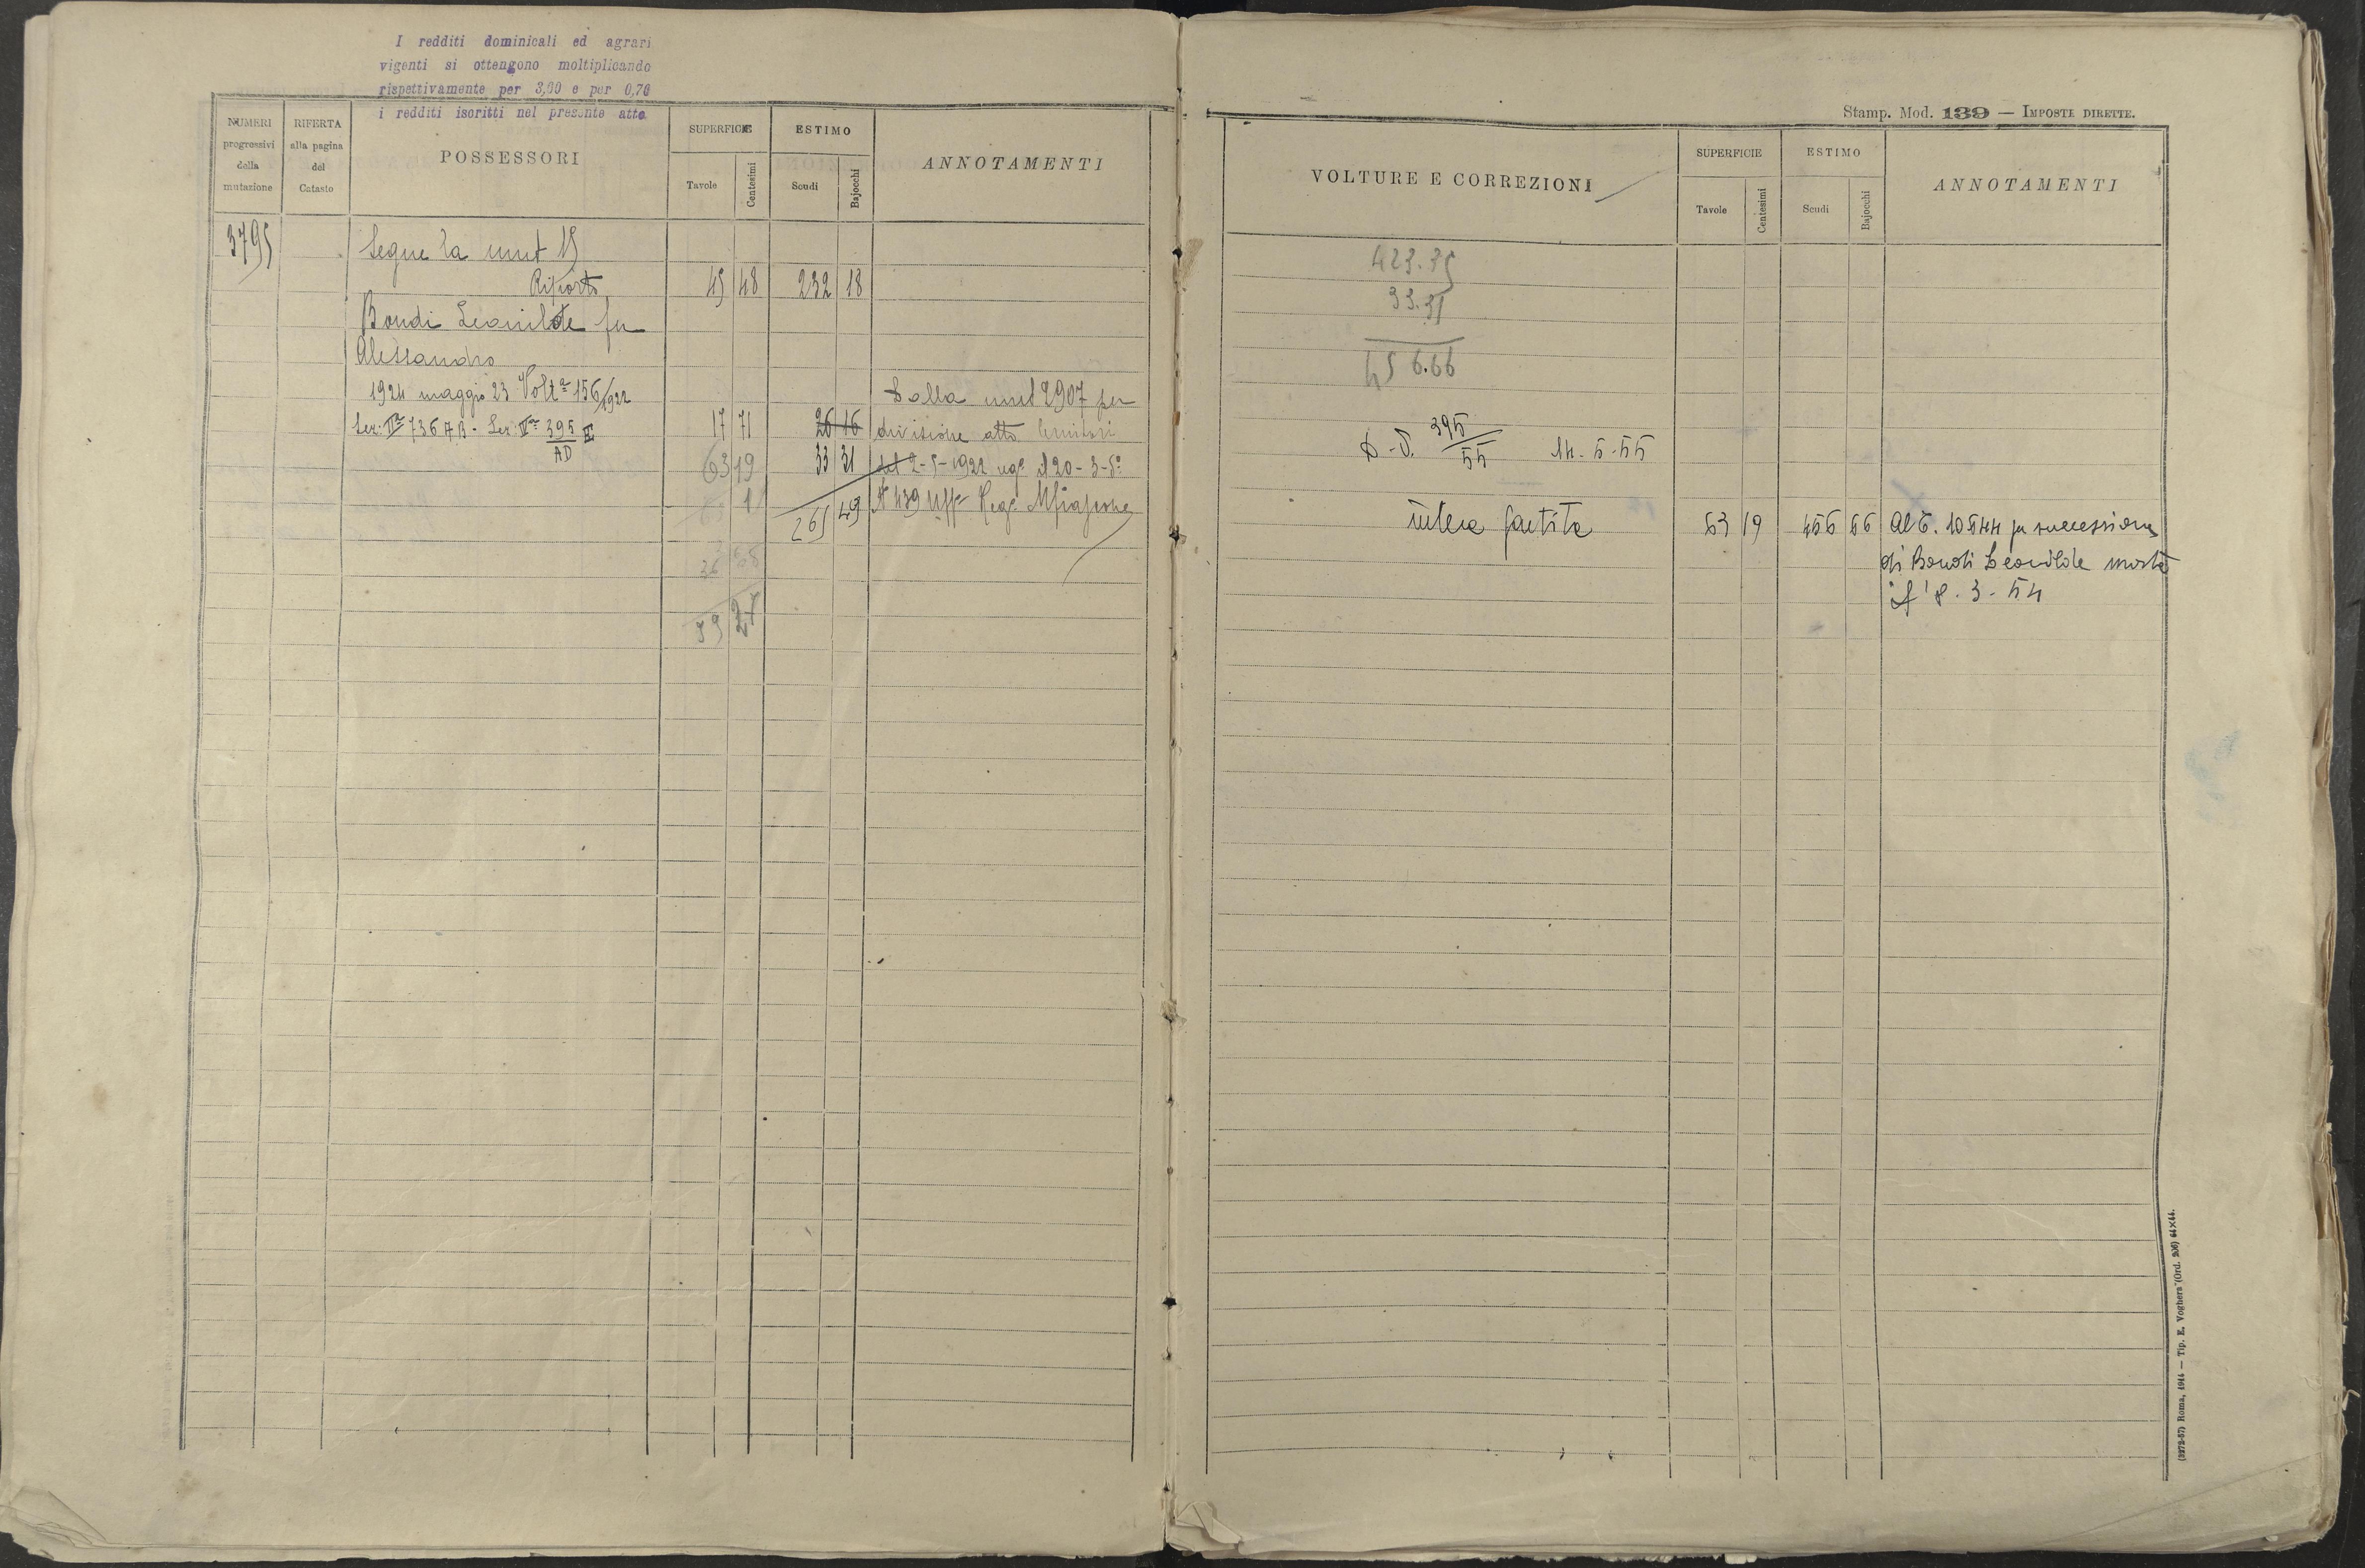 I redditi dominicali ed agrari
vigenti si ottengono moltiplicando
rispettivamente per 3,00 e per 0,70
i redditi iscritti nel presente atto
NUMERI
progressivi
della
mutazione
RIFERTA
alla pagina
del
Catasto
POSSESSORI
SUPERFICIE
Tavole
Centesimi
ESTIMO
Scudi
Bajocchi
ANNOTAMENTI
3795
Segue la mut 15
Riporto 45 48 232 18
Bondi Leonilde fu
Alessandro
1924 maggio 23 Volt.a 156/1922 Dalla mut 2907 per
Ser: II 736 AB - Ser: V 395 17 71 26 16 divisione atto
AD
63 19 33 31 del 2-5-1922 reg.
265 49 N 439 Uff Reg.
36
99 27
Stamp. Mod. 139 — IMPOSTE DIRETTE.
VOLTURE E CORREZIONI
SUPERFICIE
Tavole
Centesimi
ESTIMO
Scudi
Bajocchi
ANNOTAMENTI
423.35
33.31
456.66
395
55 14-5-55
intera partita 63 19 456 66 Al 10544 per successione
di Bondi Leonilde morta
8-3-54
(3272-57) Roma, 1944 — Tip. E. Voghera (Ord. 206) 64×44.